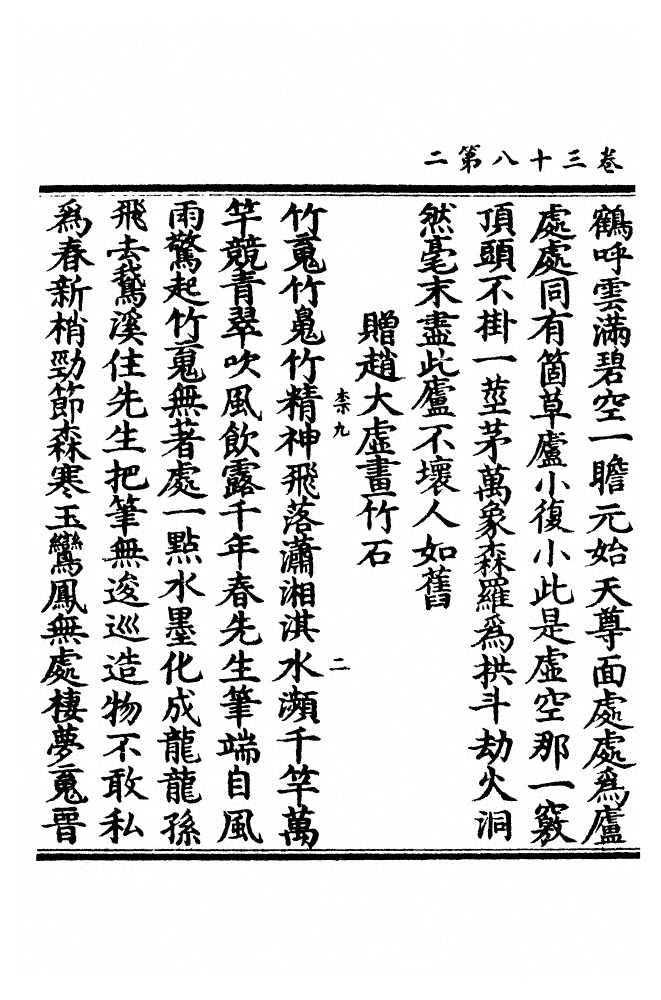 卷三十八第二
鶴呼雲滿碧空一瞻元始天尊面處處爲廬
處處同有箇草廬小復小此是虛空那一竅
頂頭不掛一莖茅萬象森羅爲拱斗劫火洞
然毫末盡此廬不壞人如舊
贈趙大虛畫竹石
柰九 二
竹䰟竹魄竹精神飛落瀟湘淇水瀕千竿萬
竿競青翠吹風飲露千年春先生筆端自風
雨驚起竹䰟無著處一點水墨化成龍龍孫
飛去鵞溪住先生把筆無逡巡造物不敢私
爲春新梢勁節森寒玉鸞鳳無處棲夢䰟晉